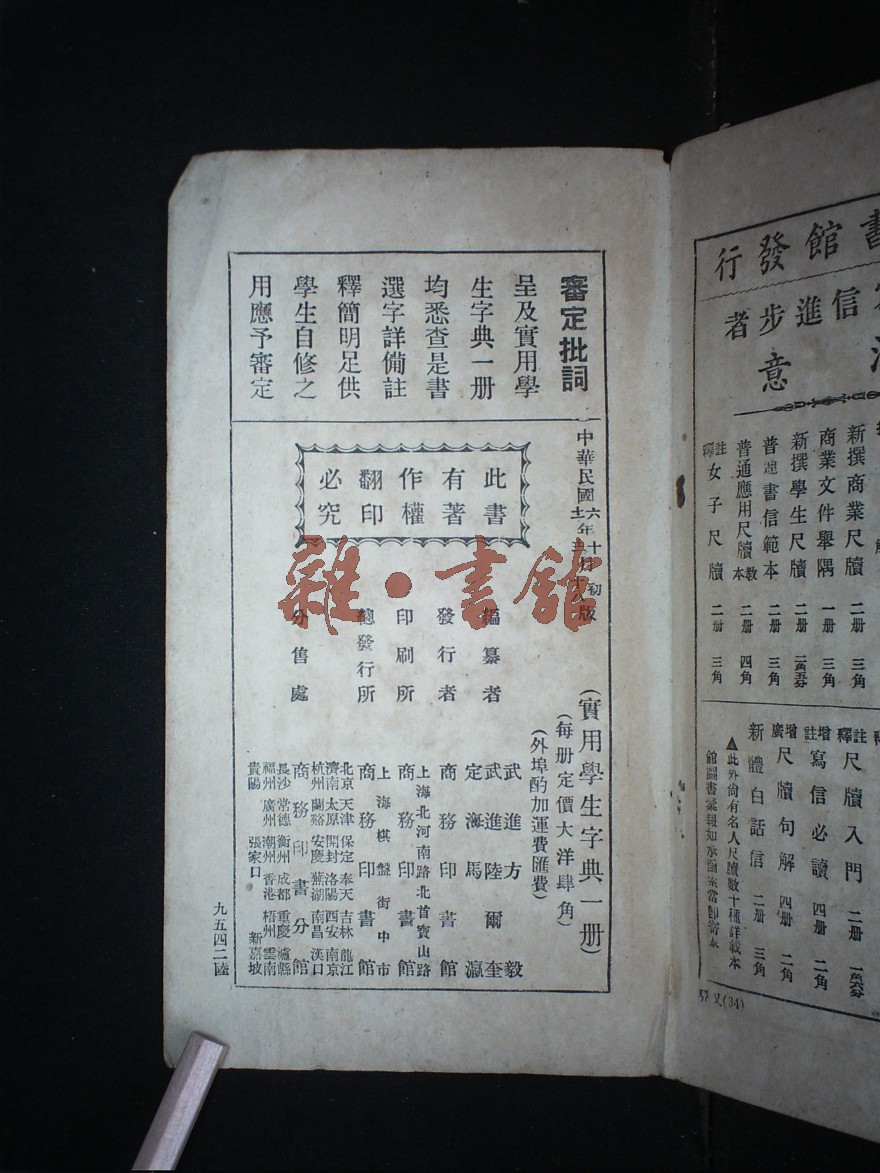 審定批詞
呈及實用學
生字典一册
均悉查是書
選字詳備註
釋簡明足供
學生自修之
用應予審定
此書
有著
作權
翻印
必究
中華民國六年十月初版
(實用學生字典一册)
(每册定價大洋肆角)
(外埠酌加運費匯費)
編纂者
武進方毅
武進陸爾奎
定海馬瀛
發行者
商務印書館
印刷所
上海北河南路北首寶山路
商務印書館
總發行所
上海棋盤街中市
商務印書館
分售處
商務印書分館
北京 天津 保定 奉天 吉林 龍江
濟南 太原 開封 洛陽 西安 南京
杭州 蘭谿 安慶 蕪湖 南昌 漢口
長沙 常德 衡州 成都 重慶 瀘縣
福州 廣州 潮州 香港 梧州 雲南
貴陽 張家口 新嘉坡
九五四二陸
雜·書館
書館發行
信進步者
意
新撰商業尺牘 二册 三角
商業文件舉隅 一册 三角
新撰學生尺牘 二册
普通書信範本 二册 三角
普通應用尺牘教本 二册 四角
註釋女子尺牘 二册 三角
註釋尺牘入門 二册
增註寫信必讀 四册 二角
廣增尺牘句解 四册 二角
新體白話信 二册 三角
▲此外尚有名人尺牘數十種詳載本
館圖書彙報如承函索當即寄奉